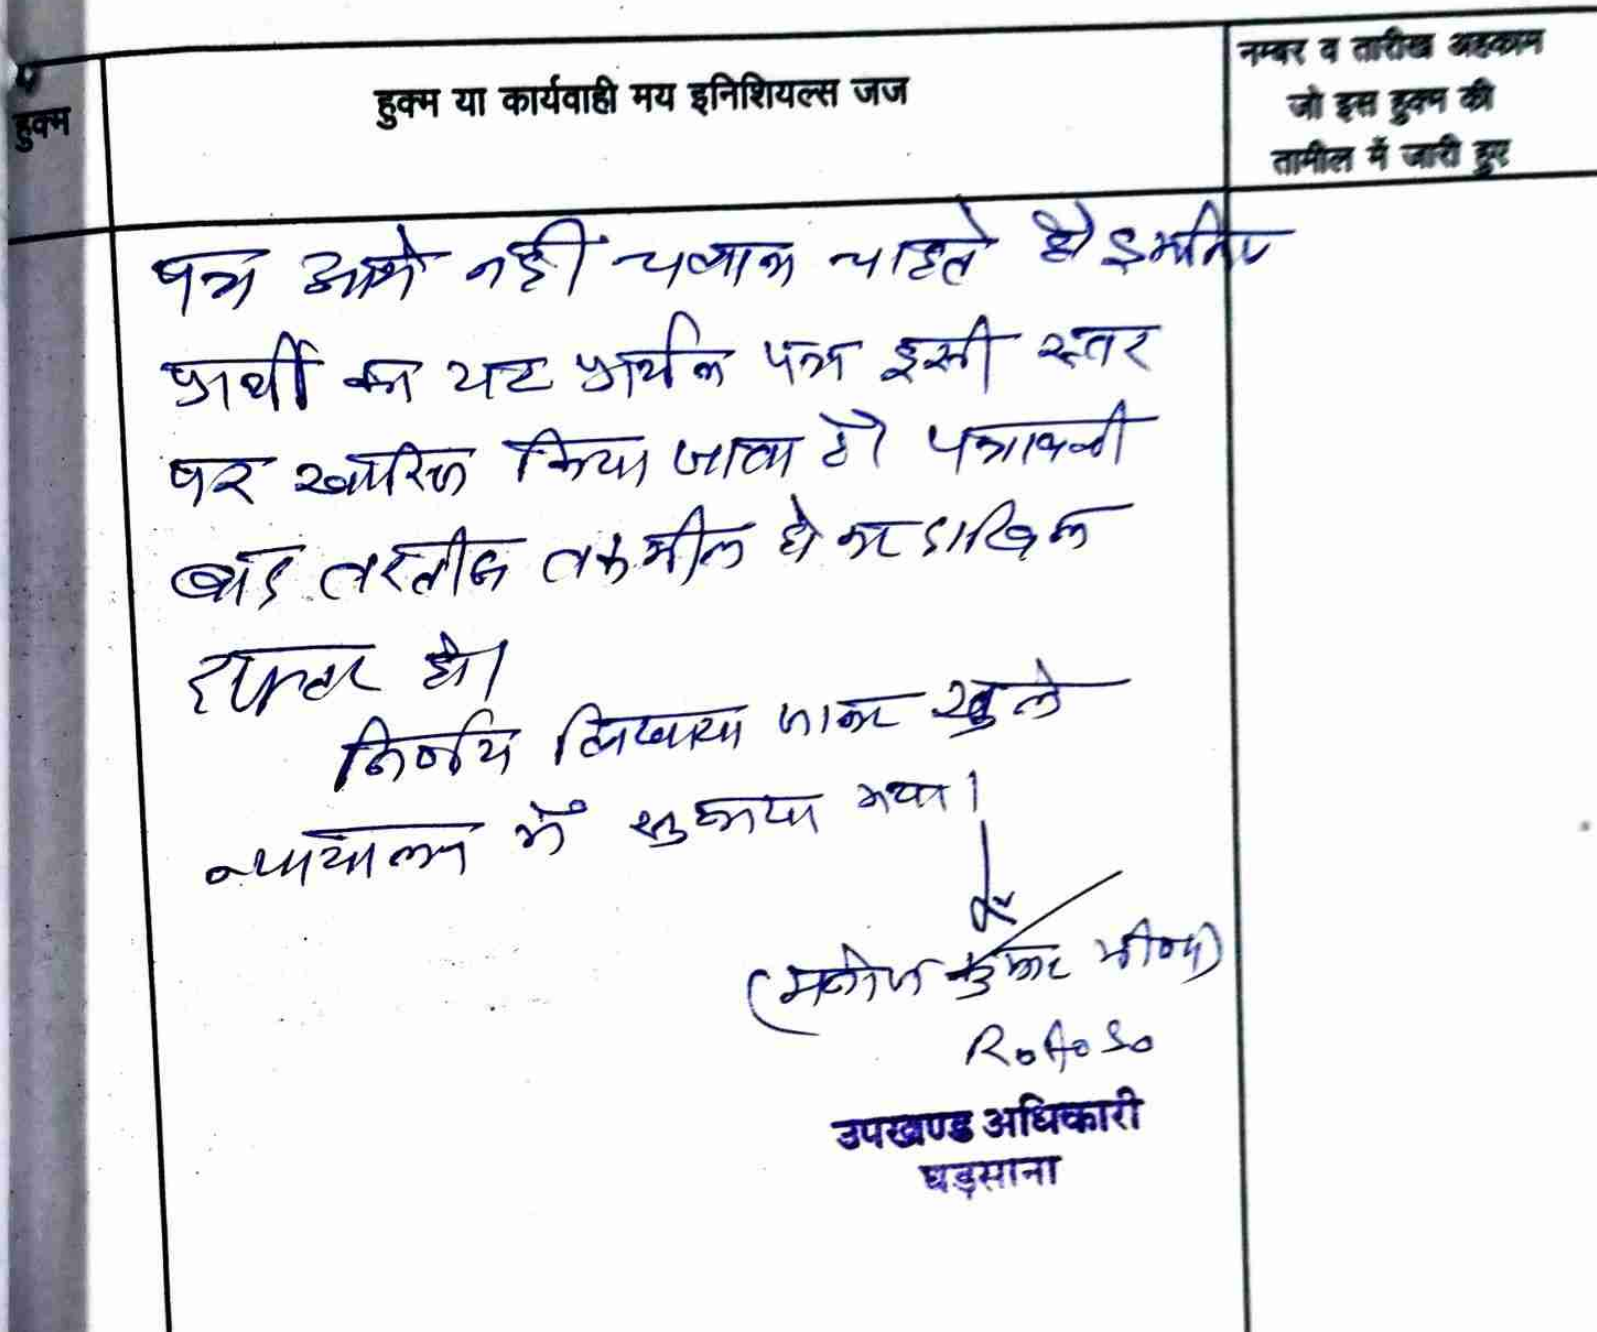 हुक्म
हुक्म या कार्यवाही मय इनिशियल्स जज
नम्बर व तारीख अहकाम
जो इस हुक्म की
तामील में जारी हुए
पत्र आगे नहीं चलाना चाहते है इसलिए
प्रार्थी का यह प्रार्थना पत्र इसी स्तर
पर खारिज किया जाता है। पत्रावली
बाद तरतीब तकमील हो कर दाखिल
दफ्तर हो।
निर्णय लिखाया जाकर खुले
न्यायालय में सुनाया गया।
(मनोज कुमार मीणा)
R.A.S.
उपखण्ड अधिकारी
घड़साना